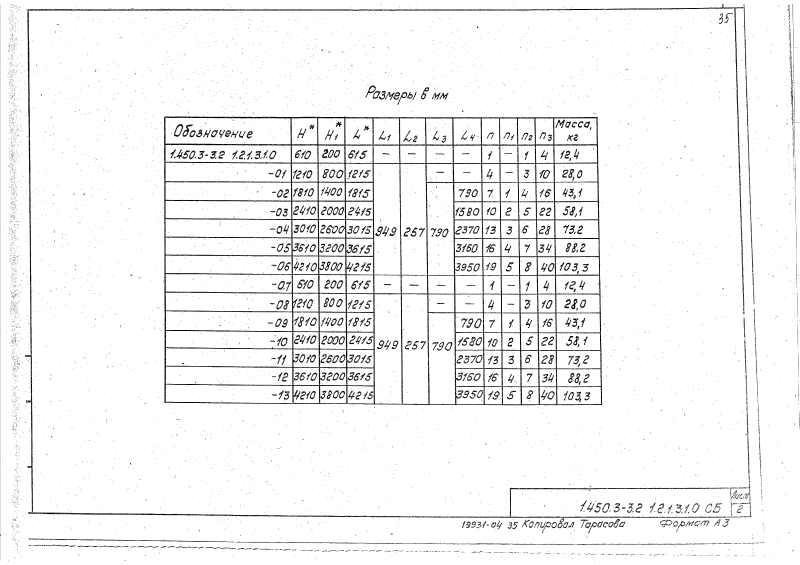 35
Размеры в мм
Обозначение H* H1* L* L1 L2 L3 L4 n n1 n2 n3 Масса, кг
1.450.3-3.2 1.2.1.3.1.0 610 200 615 — — — — 1 — 1 4 12,4
-01 1210 800 1215 949 257 — — 4 — 3 10 28,0
-02 1810 1400 1815 790 790 7 1 4 16 43,1
-03 2410 2000 2415 1580 10 2 5 22 58,1
-04 3010 2600 3015 2370 13 3 6 28 73,2
-05 3610 3200 3615 3160 16 4 7 34 88,2
-06 4210 3800 4215 3950 19 5 8 40 103,3
-07 610 200 615 — — — — 1 — 1 4 12,4
-08 1210 800 1215 949 257 — — 4 — 3 10 28,0
-09 1810 1400 1815 790 790 7 1 4 16 43,1
-10 2410 2000 2415 1580 10 2 5 22 58,1
-11 3010 2600 3015 2370 13 3 6 28 73,2
-12 3610 3200 3615 3160 16 4 7 34 88,2
-13 4210 3800 4215 3950 19 5 8 40 103,3
1.450.3-3.2 1.2.1.3.1.0 СБ
Лист
2
19931-04 35 Копировал Тарасова Формат А3